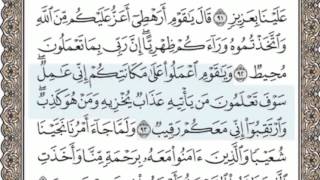 عَلَيْنَا بِعَزِيزٍ ﴿٩١﴾ قَالَ يَٰقَوْمِ أَرَهْطِىٓ أَعَزُّ عَلَيْكُم مِّنَ ٱللَّهِ
وَٱتَّخَذْتُمُوهُ وَرَآءَكُمْ ظِهْرِيًّا ۖ إِنَّ رَبِّى بِمَا تَعْمَلُونَ
مُحِيطٌ ﴿٩٢﴾ وَيَٰقَوْمِ ٱعْمَلُوا۟ عَلَىٰ مَكَانَتِكُمْ إِنِّى عَٰمِلٌ ۖ
سَوْفَ تَعْلَمُونَ مَن يَأْتِيهِ عَذَابٌ يُخْزِيهِ وَمَنْ هُوَ كَٰذِبٌ ۖ
وَٱرْتَقِبُوٓا۟ إِنِّى مَعَكُمْ رَقِيبٌ ﴿٩٣﴾ وَلَمَّا جَآءَ أَمْرُنَا نَجَّيْنَا
شُعَيْبًا وَٱلَّذِينَ ءَامَنُوا۟ مَعَهُۥ بِرَحْمَةٍ مِّنَّا وَأَخَذَتِ